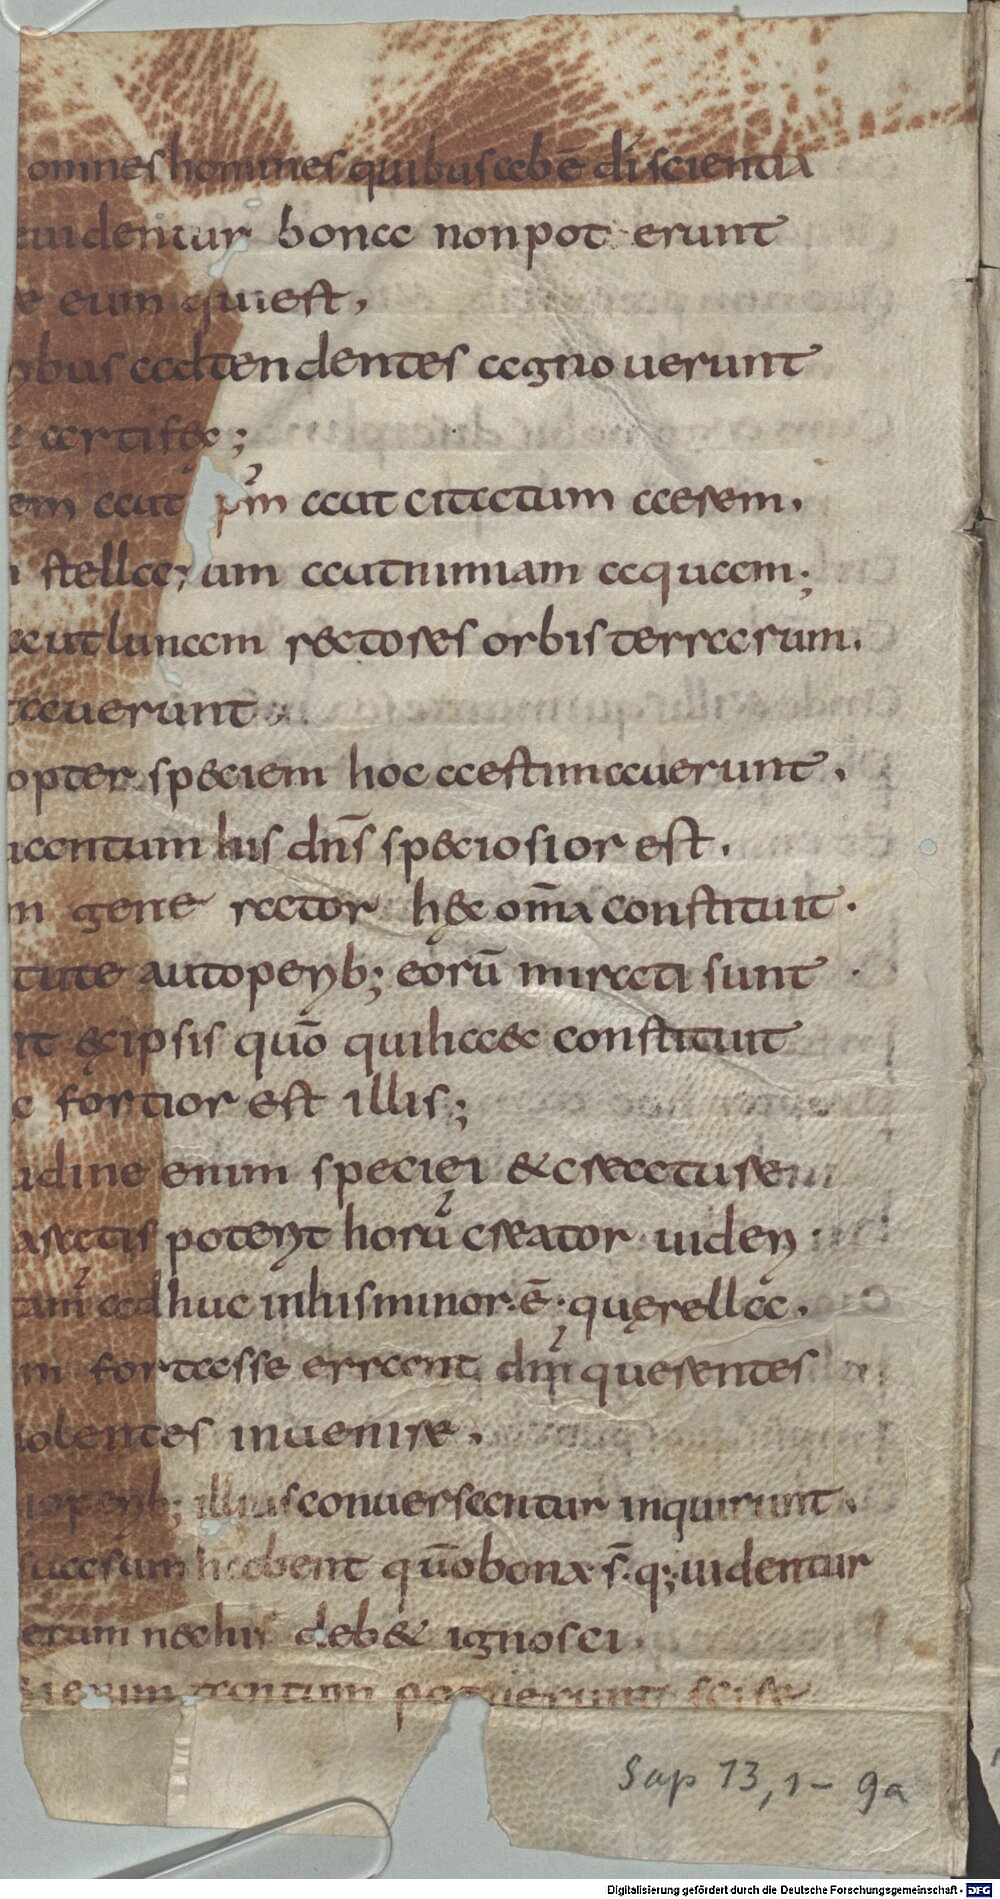 omnes homines quibus abē di scientia
uidentur bona non pot erunt
e eum qui est,
obus adtendentes agnouerunt
artifex;
em aut spm aut citatum aerem.
stellarum aut nimiam aquam;
aut lunam rectores orbis terrarum.
tauerunt.
opter speciem hoc aestimauerunt.
uantum his dn̄s speciosior est.
m gene rator hęc om̄a constituit.
tute aut operib; eorū mirati sunt.
nt ex ipsis quō qui haec constituit
fortior est illis;
udine enim specięi & creaturae
poterit horū creator uideri
tam adhuc in his minor. ē. quęrella.
m fortasse errant dm querentes
uolentes inuenire.
operib; illius conuersantur inquirunt.
suasum habent quō bona s̄. q; uidentur
erum nec his deb& ignosci.
si enim tantum potuerunt scire
Sap 13, 1 – 9a
Digitalisierung gefördert durch die Deutsche Forschungsgemeinschaft - DFG